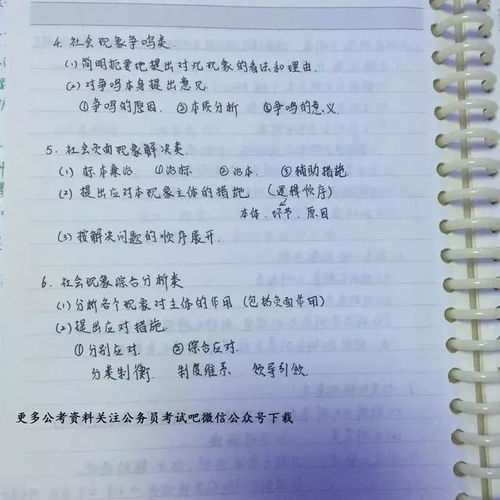 4. 社会现象争鸣类.
(1) 简明扼要地提出对此现象的看法和理由.
(2) 对争鸣本身提出意见
①争鸣的原因 ②本质分析 ③争鸣的意义.
5. 社会负面现象解决类
(1) 标本兼治 ①治标 ②治本. ③辅助措施
(2) 提出应对本现象主体的措施 (逻辑顺序)
本体、环节、原因
(3) 按解决问题的顺序展开.
6. 社会现象综合分析类
(1) 分析各个现象对主体的作用 (包括负面作用)
(2) 提出应对措施
①分别应对 ②综合应对.
分类制衡 制度维系
更多公考资料关注公务员考试吧微信公众号下载